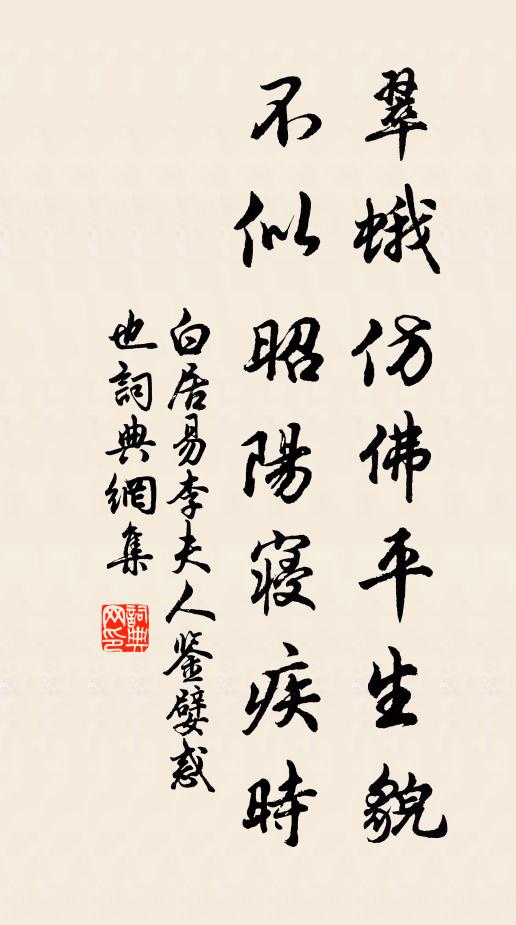 翠蛾仿佛平生貌
不似昭陽寝疾時
白居易李夫人鉴嬖惑
也詞典網集
詞典
网印